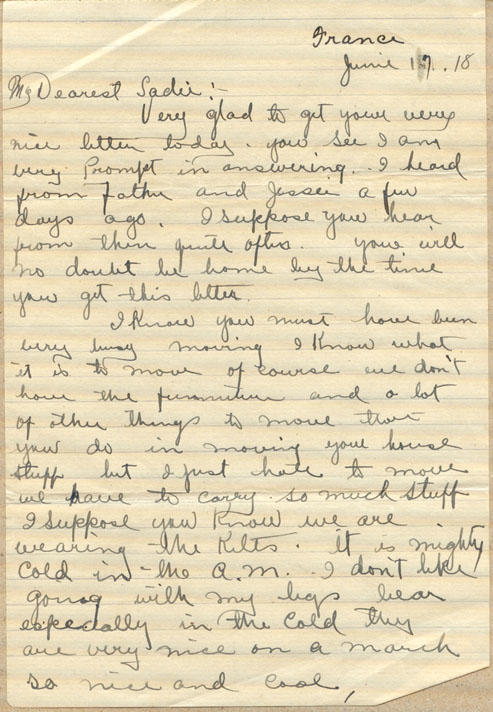 France
June 17. 18
My Dearest Sadie:-
Very glad to get your very
nice letter today. you see I am
very Prompt in answering. I heard
from Father and Jessie a few
days ago. I suppose you hear
from them quite often. you will
no doubt be home by the time
you get this letter.
I Know you must have been
very busy moving I Know what
it is to move of course we don't
have the furniture and a lot
of other things to move that
you do in moving your house
stuff but I just hate to move
we have to carry so much stuff
I suppose you Know we are
wearing the Kilts. it is mighty
cold in the A.M. I don't like
going with my legs bear
especially in the cold they
are very nice on a march
so nice and cool,